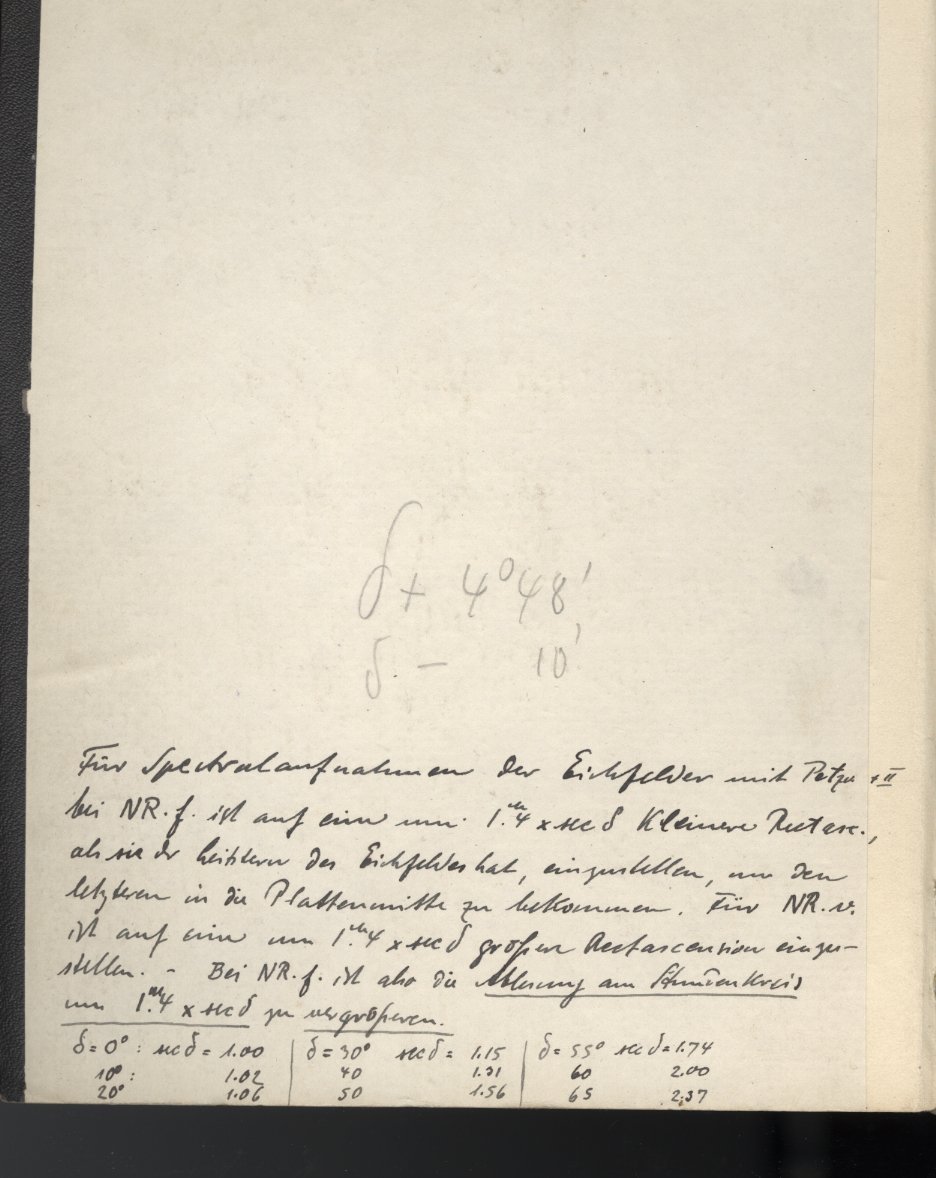 δ + 4° 48'
δ − 10'
Für Spectralaufnahmen der Eichfelder mit Petzv. + II
bei NR. f. ist auf eine um 1.ᵐ4 × sec δ Kleinere Rectasc.,
als sie der Leitstern des Eichfeldes hat, einzustellen, um den
letzteren in die Plattenmitte zu bekommen. Für NR. v.
ist auf eine um 1.ᵐ4 × sec δ größere Rectascension einzu-
stellen. - Bei NR. f. ist also die Ablesung am Stundenkreis
um 1.ᵐ4 × sec δ zu vergrößeren.
δ = 0° : sec δ = 1.00 | δ = 30° sec δ = 1.15 | δ = 55° sec δ = 1.74
10° : 1.02 | 40 1.31 | 60 2.00
20° 1.06 | 50 1.56 | 65 2.37